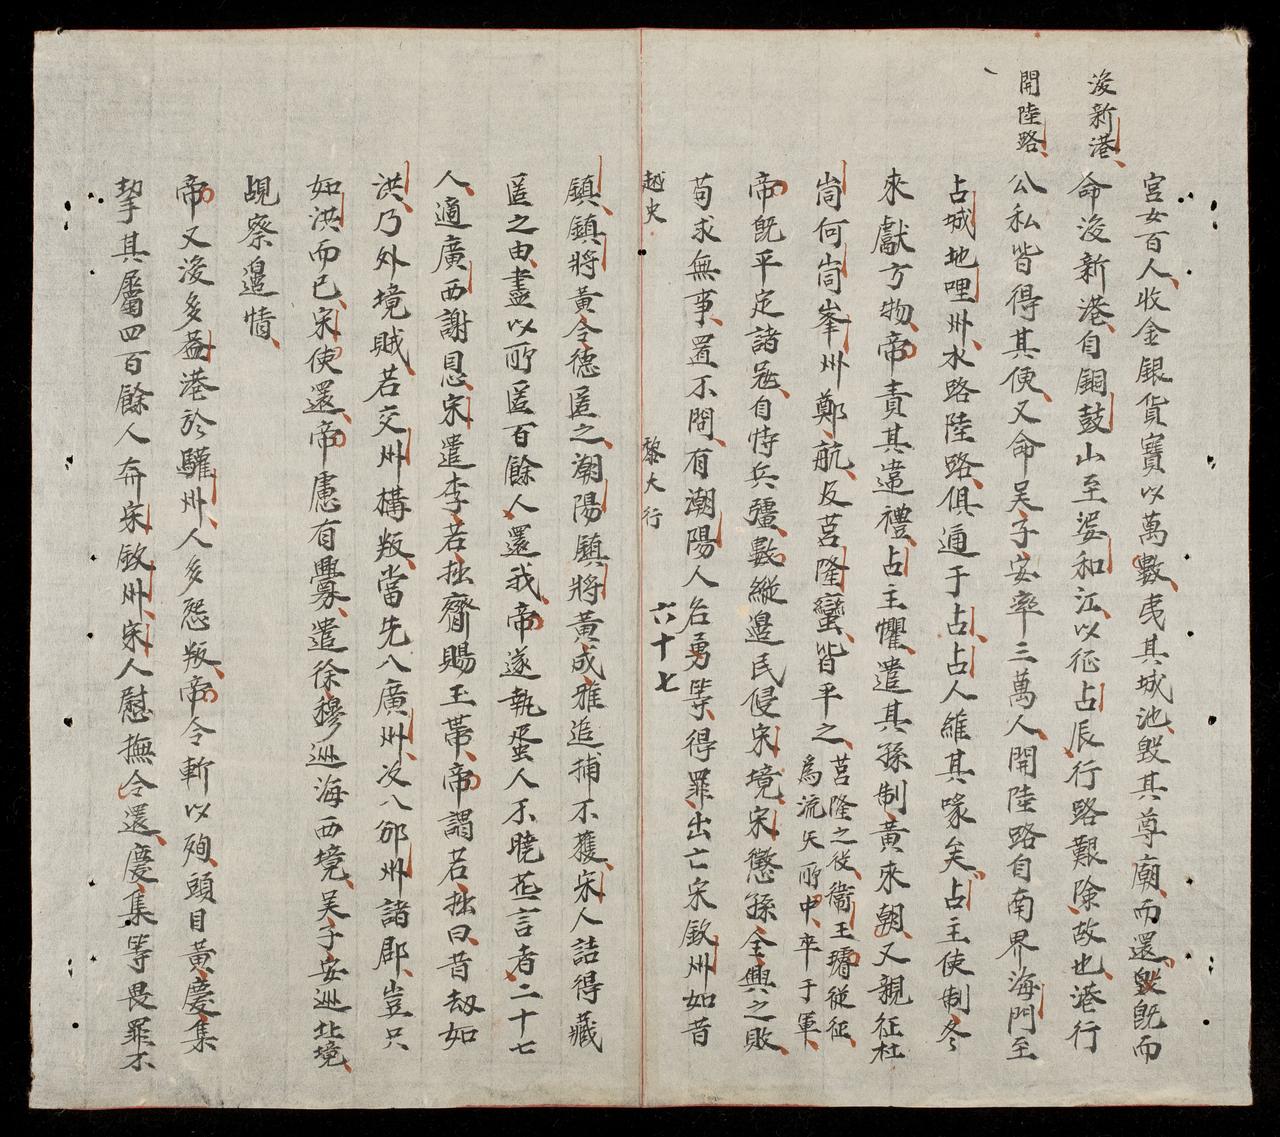 浚新港
開陸路
宮女百人收金銀貨寶以萬數夷其城池毀其尊廟而還毀既而
命浚新港自銅鼓山至婆和江以征占辰行路艱險故也港行
公私皆得其便又命吳子安率三萬人開陸路自南界海門至
占城地哩州水路陸路俱通于占占人維其喙矣占主使制冬
來獻方物帝責其違禮占主懼遣其孫制黃來朝又親征杜
峝何峝峯州鄭航及莒隆蠻皆平之莒隆之役衛王𤩍從征
為流矢所中卒于軍
帝既平定諸冦自恃兵彊數縱邉民侵宋境宋懲孫全興之敗
苟求無事置不問有潮陽人名勇等得罪出亡宋欽州如昔
越史 黎大行 六十七
鎮鎮將黃令德匿之潮陽鎮將黃成雅追捕不獲宋人詰得藏
匿之由盡以所匿百餘人還我帝遂執蛋人不曉華言者二十七
人適廣西謝恩宋遣李若拙齎賜玉帶帝謂若拙曰昔刼如
洪乃外境賊若交州構叛當先入廣州次入邠州諸郡豈只
如洪而已宋使還帝慮有釁遣徐穆廵海西境吳子安廵北境
覘察邉情
帝又浚多益港於驩州人多怨叛帝令斬以殉頭目黃慶集
挈其屬四百餘人奔宋欽州宋人慰撫令還慶集等畏罪不